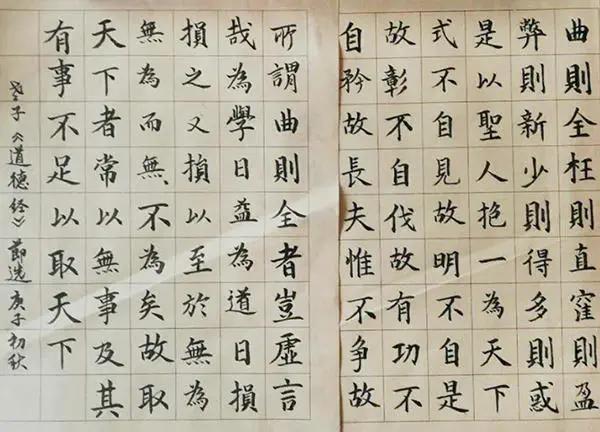 曲則全枉則直窪則盈
弊則新少則得多則惑
是以聖人抱一為天下
式不自見故明不自是
故彰不自伐故有功不
自矜故長夫惟不争故
所謂曲則全者豈虛言
哉為學日益為道日損
損之又損以至於無為
無為而無不為矣故取
天下者常以無事及其
有事不足以取天下
老子《道德经》節选 庚子初秋